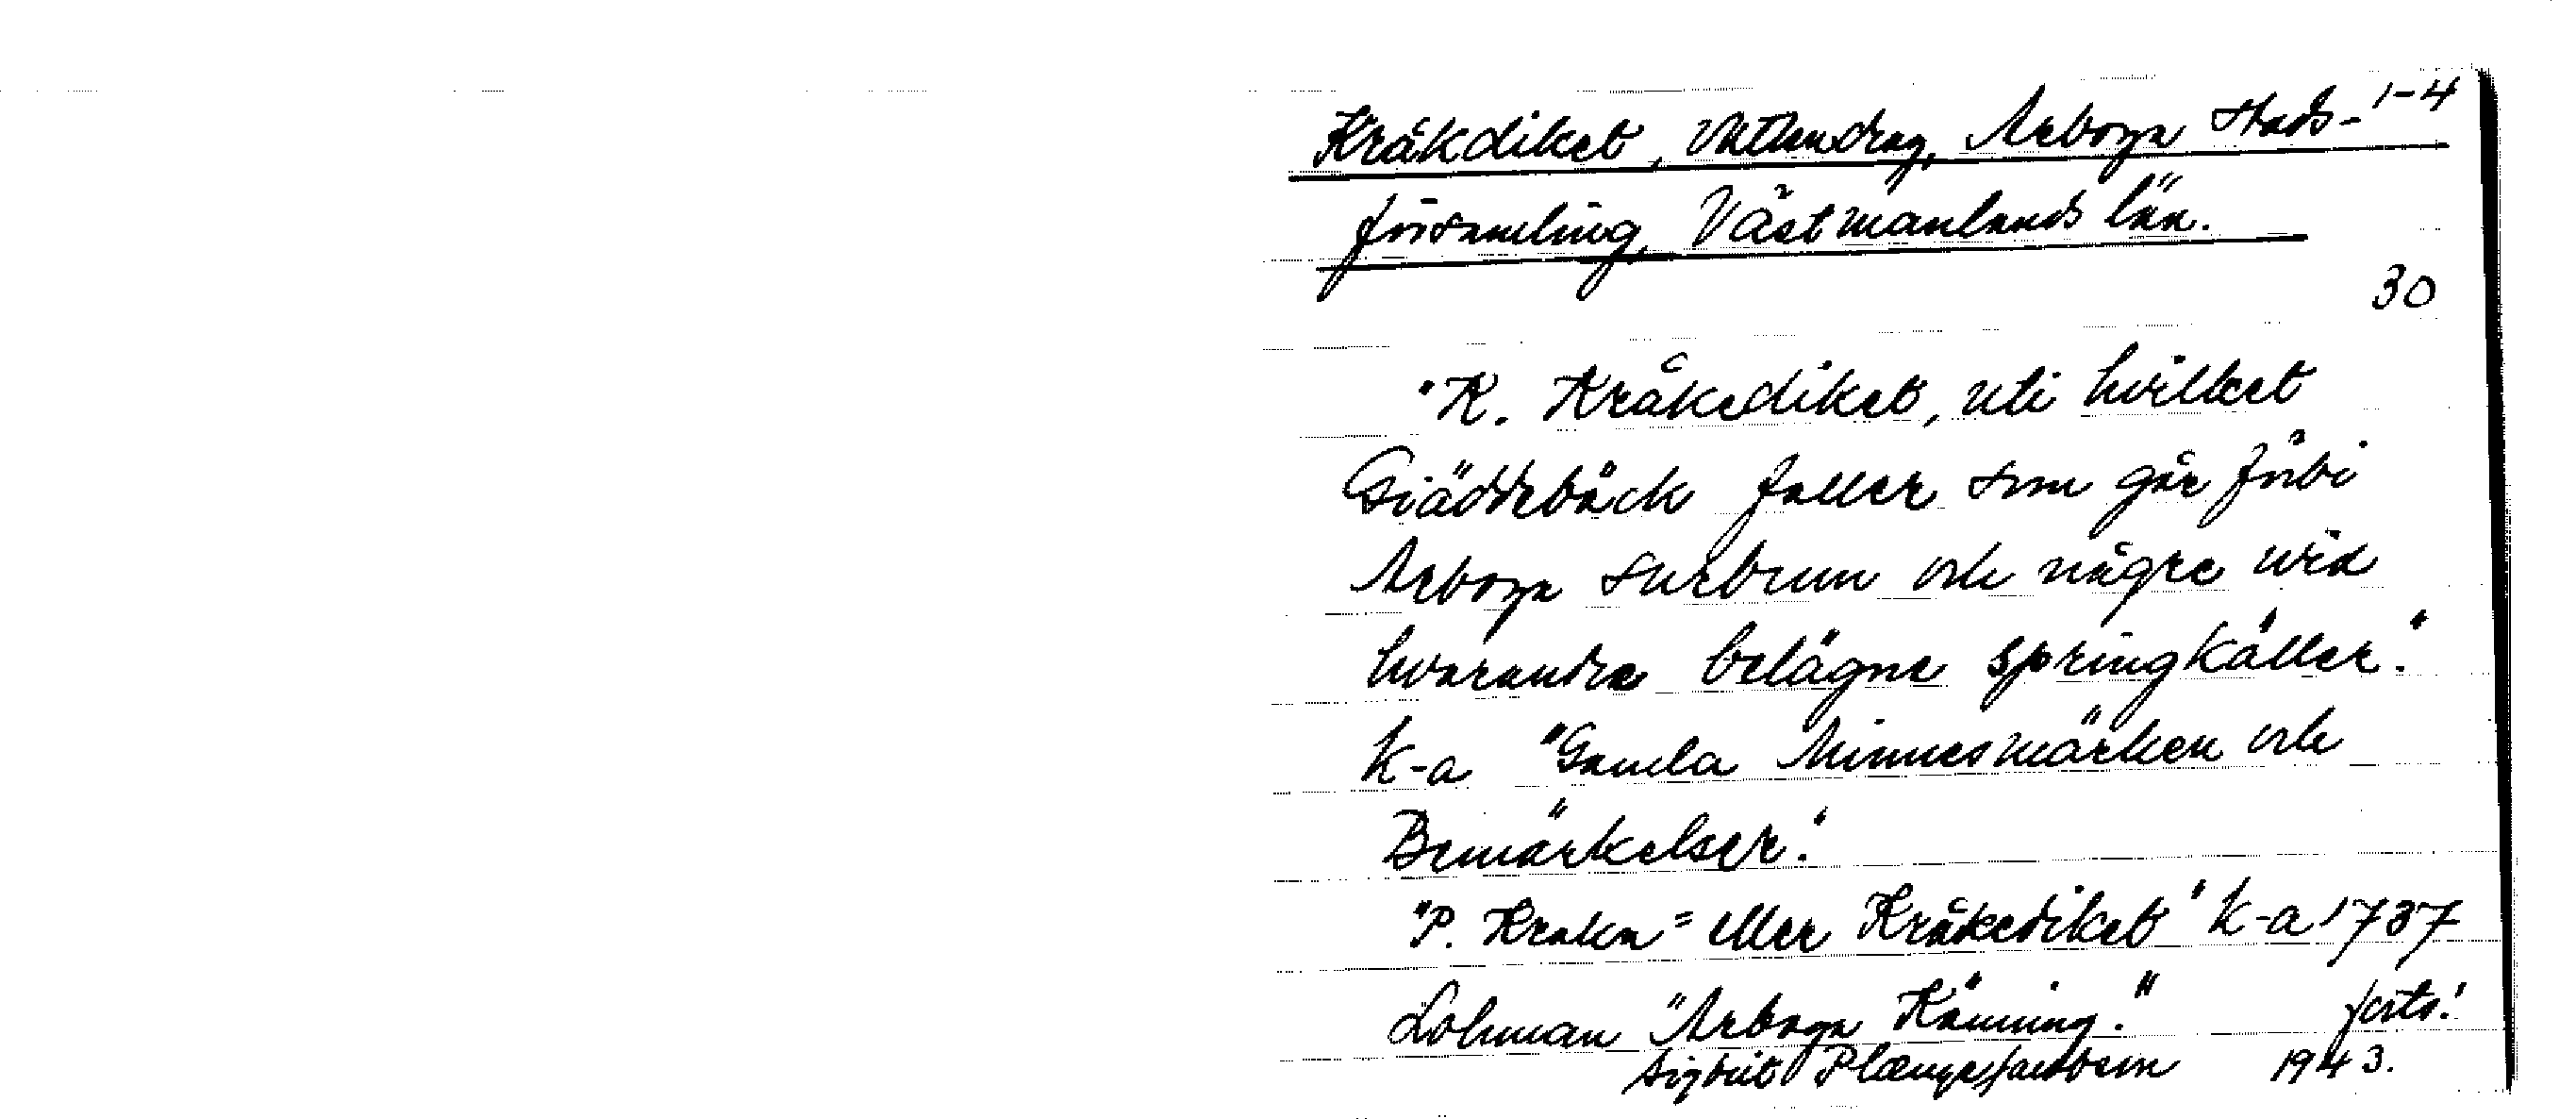 Kråkdiket, Vattendrag, Arboga stads- 1-4
församling, Västmanlands län.
30
"K. Kråkediket, uti hvilket
Giäddebäck faller som går förbi
Arboga surbrun och någre wid
hvarandra belägne springkäller."
K-a "Gamla Minnesmärken och
Bemärkelser."
"P. Kraka= eller Kråkediket" K-a 1737
Lohman "Arboga Känning." forts!
Sigbrit Plænge Jacobson 1943.